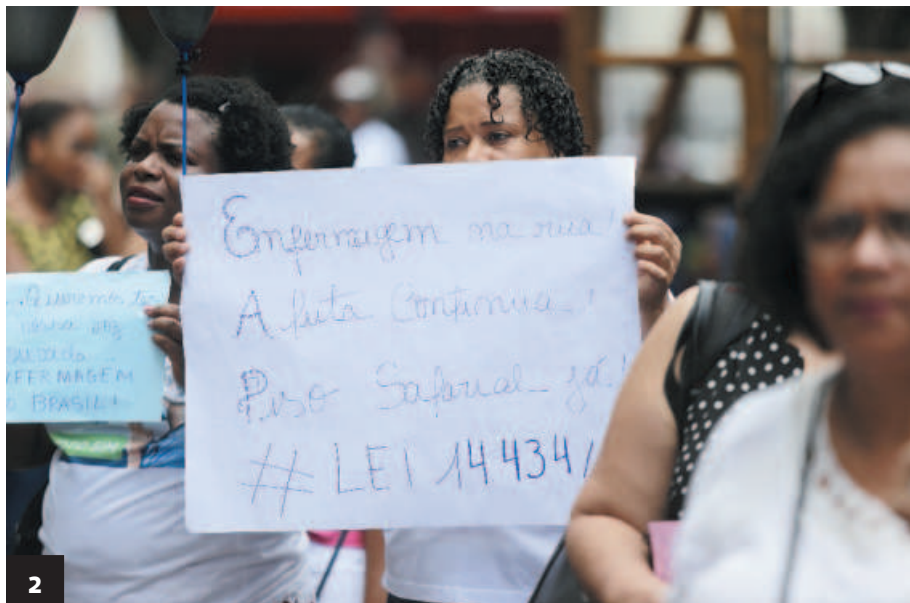 Enfermagem na rua!
A luta Continua!
Piso Salarial já!
# LEI 14434/
...Queremos ter
nossa voz
ENFERMAGEM
BRASIL!
2